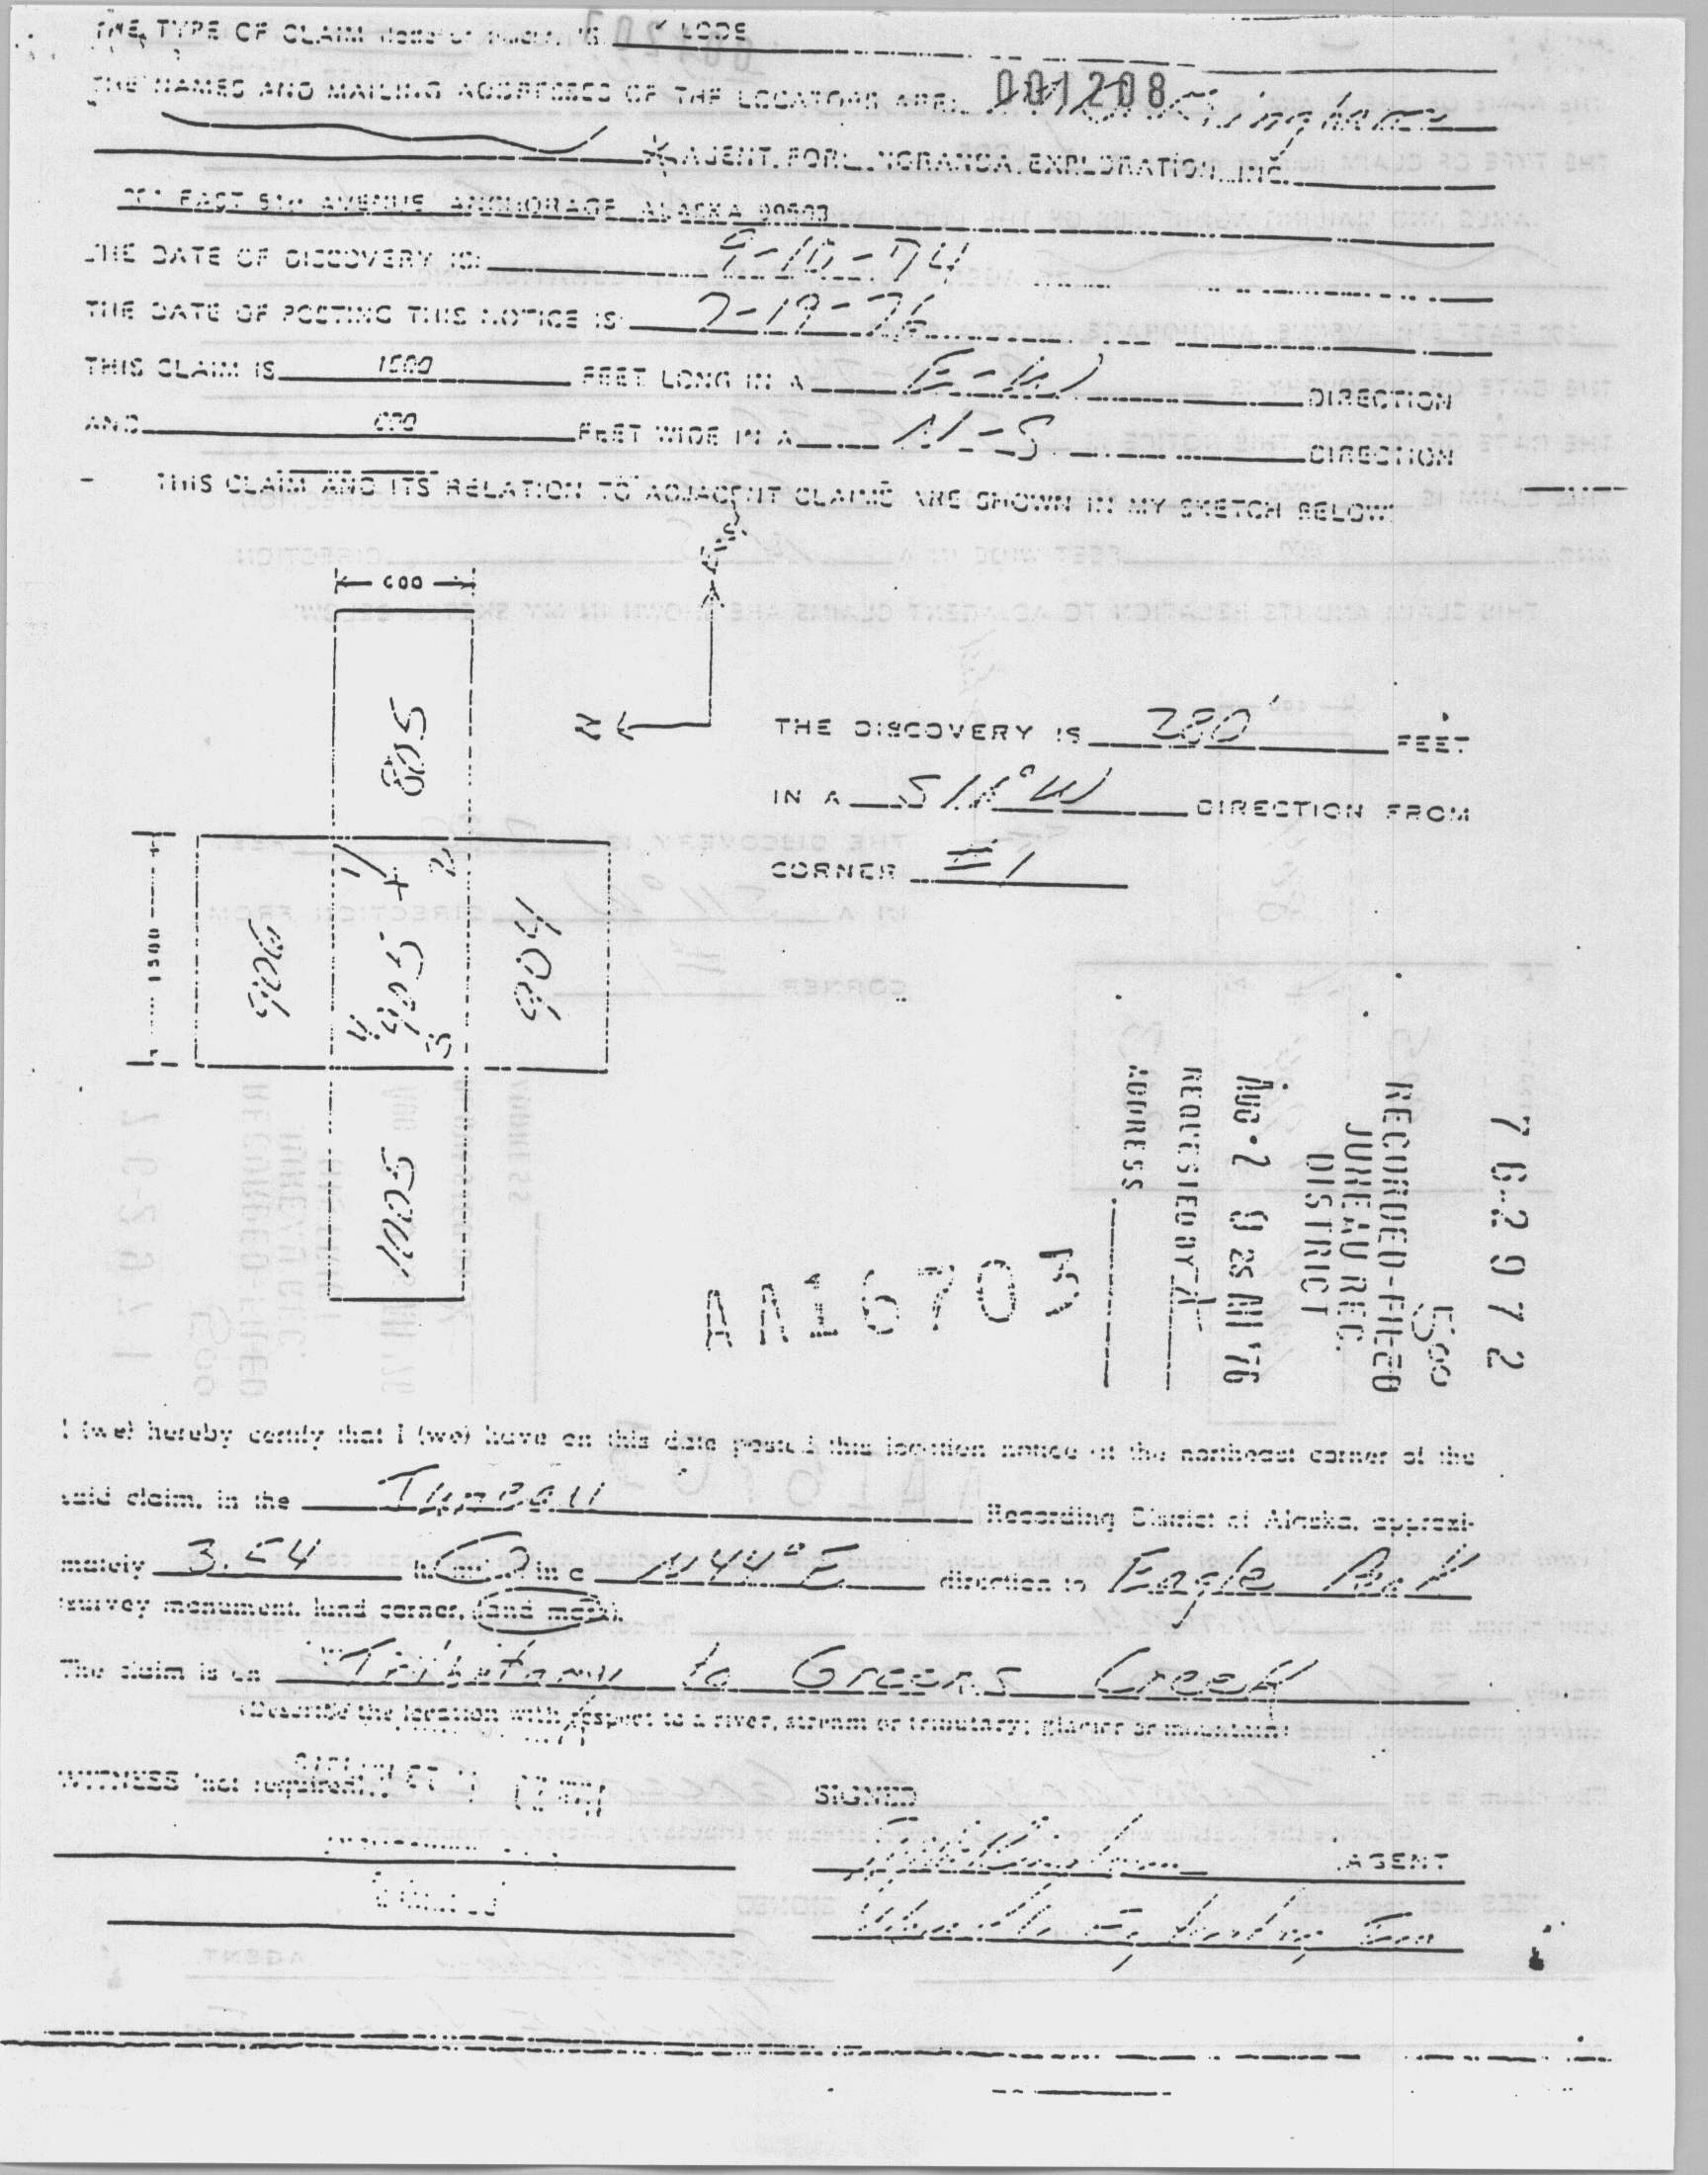 THE TYPE OF CLAIM (lode or placer) IS ✓ LODE
001208
THE NAMES AND MAILING ADDRESSES OF THE LOCATORS ARE:
* AGENT FOR NORANDA EXPLORATION, INC.
EAST 5TH AVENUE, ANCHORAGE, ALASKA
THE DATE OF DISCOVERY IS: 9-10-74
THE DATE OF POSTING THIS NOTICE IS: 7-19-76
THIS CLAIM IS 1500 FEET LONG IN A E-W DIRECTION
AND 600 FEET WIDE IN A N-S DIRECTION
THIS CLAIM AND ITS RELATION TO ADJACENT CLAIMS ARE SHOWN IN MY SKETCH BELOW:
600
805
N
THE DISCOVERY IS 280' FEET
IN A DIRECTION FROM
CORNER #1
1500
906
1
2
905
4
3
904
1005
76-2972
500
RECORDED-FILED
JUNEAU REC.
DISTRICT
AUG 2 AM '76
REQUESTED BY
ADDRESS
AA16703
I (we) hereby certify that I (we) have on this date posted this location notice at the northeast corner of the
said claim, in the Juneau Recording District of Alaska, approxi-
mately 3.54 in a N44°E direction to Eagle Peak
(survey monument, land corner, land mark).
The claim is on Tributary to Greens Creek
(Describe the location with respect to a river, stream or tributary; glacier or mountain)
WITNESS (not required)
SIGNED
AGENT